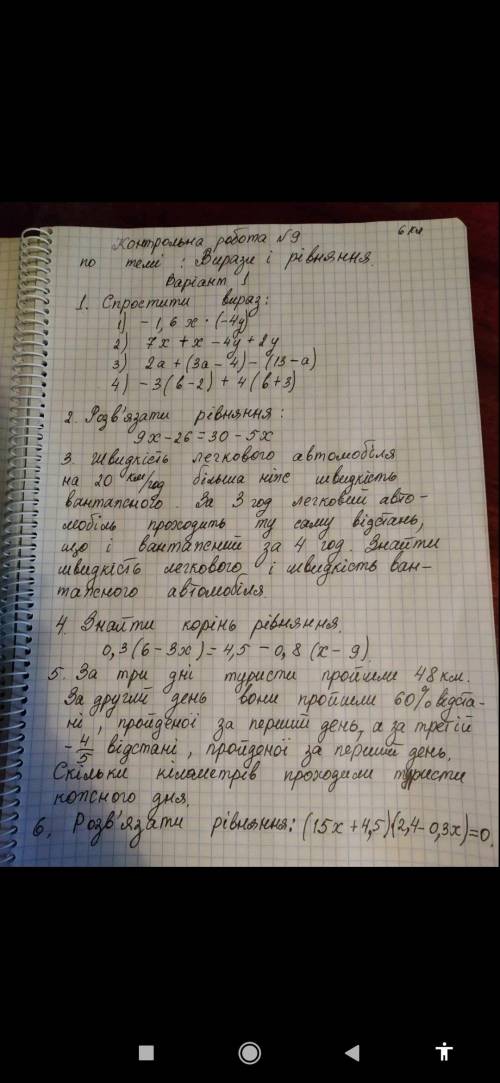 Контрольна робота №9 6 кл
по темі: Вирази і рівняння.
Варіант 1
1. Спростити вираз:
1) - 1,6 x · (-4y)
2) 7x + x - 4y + 2y
3) 2a + (3a - 4) - (13 - a)
4) - 3(b - 2) + 4(b + 3)
2. Розв'язати рівняння:
9x - 26 = 30 - 5x
3. Швидкість легкового автомобіля
на 20 км/год більша ніж швидкість
вантажного. За 3 год легковий авто-
мобіль проходить ту саму відстань,
що і вантажний за 4 год. Знайти
швидкість легкового і швидкість ван-
тажного автомобіля.
4. Знайти корінь рівняння.
0,3(6 - 3x) = 4,5 - 0,8(x - 9)
5. За три дні туристи пройшли 48 км.
За другий день вони пройшли 60% відста-
ні, пройденої за перший день, а за третій
- 4/5 відстані, пройденої за перший день.
Скільки кілометрів проходили туристи
кожного дня.
6. Розв'язати рівняння: (15x + 4,5)(2,4 - 0,3x) = 0.